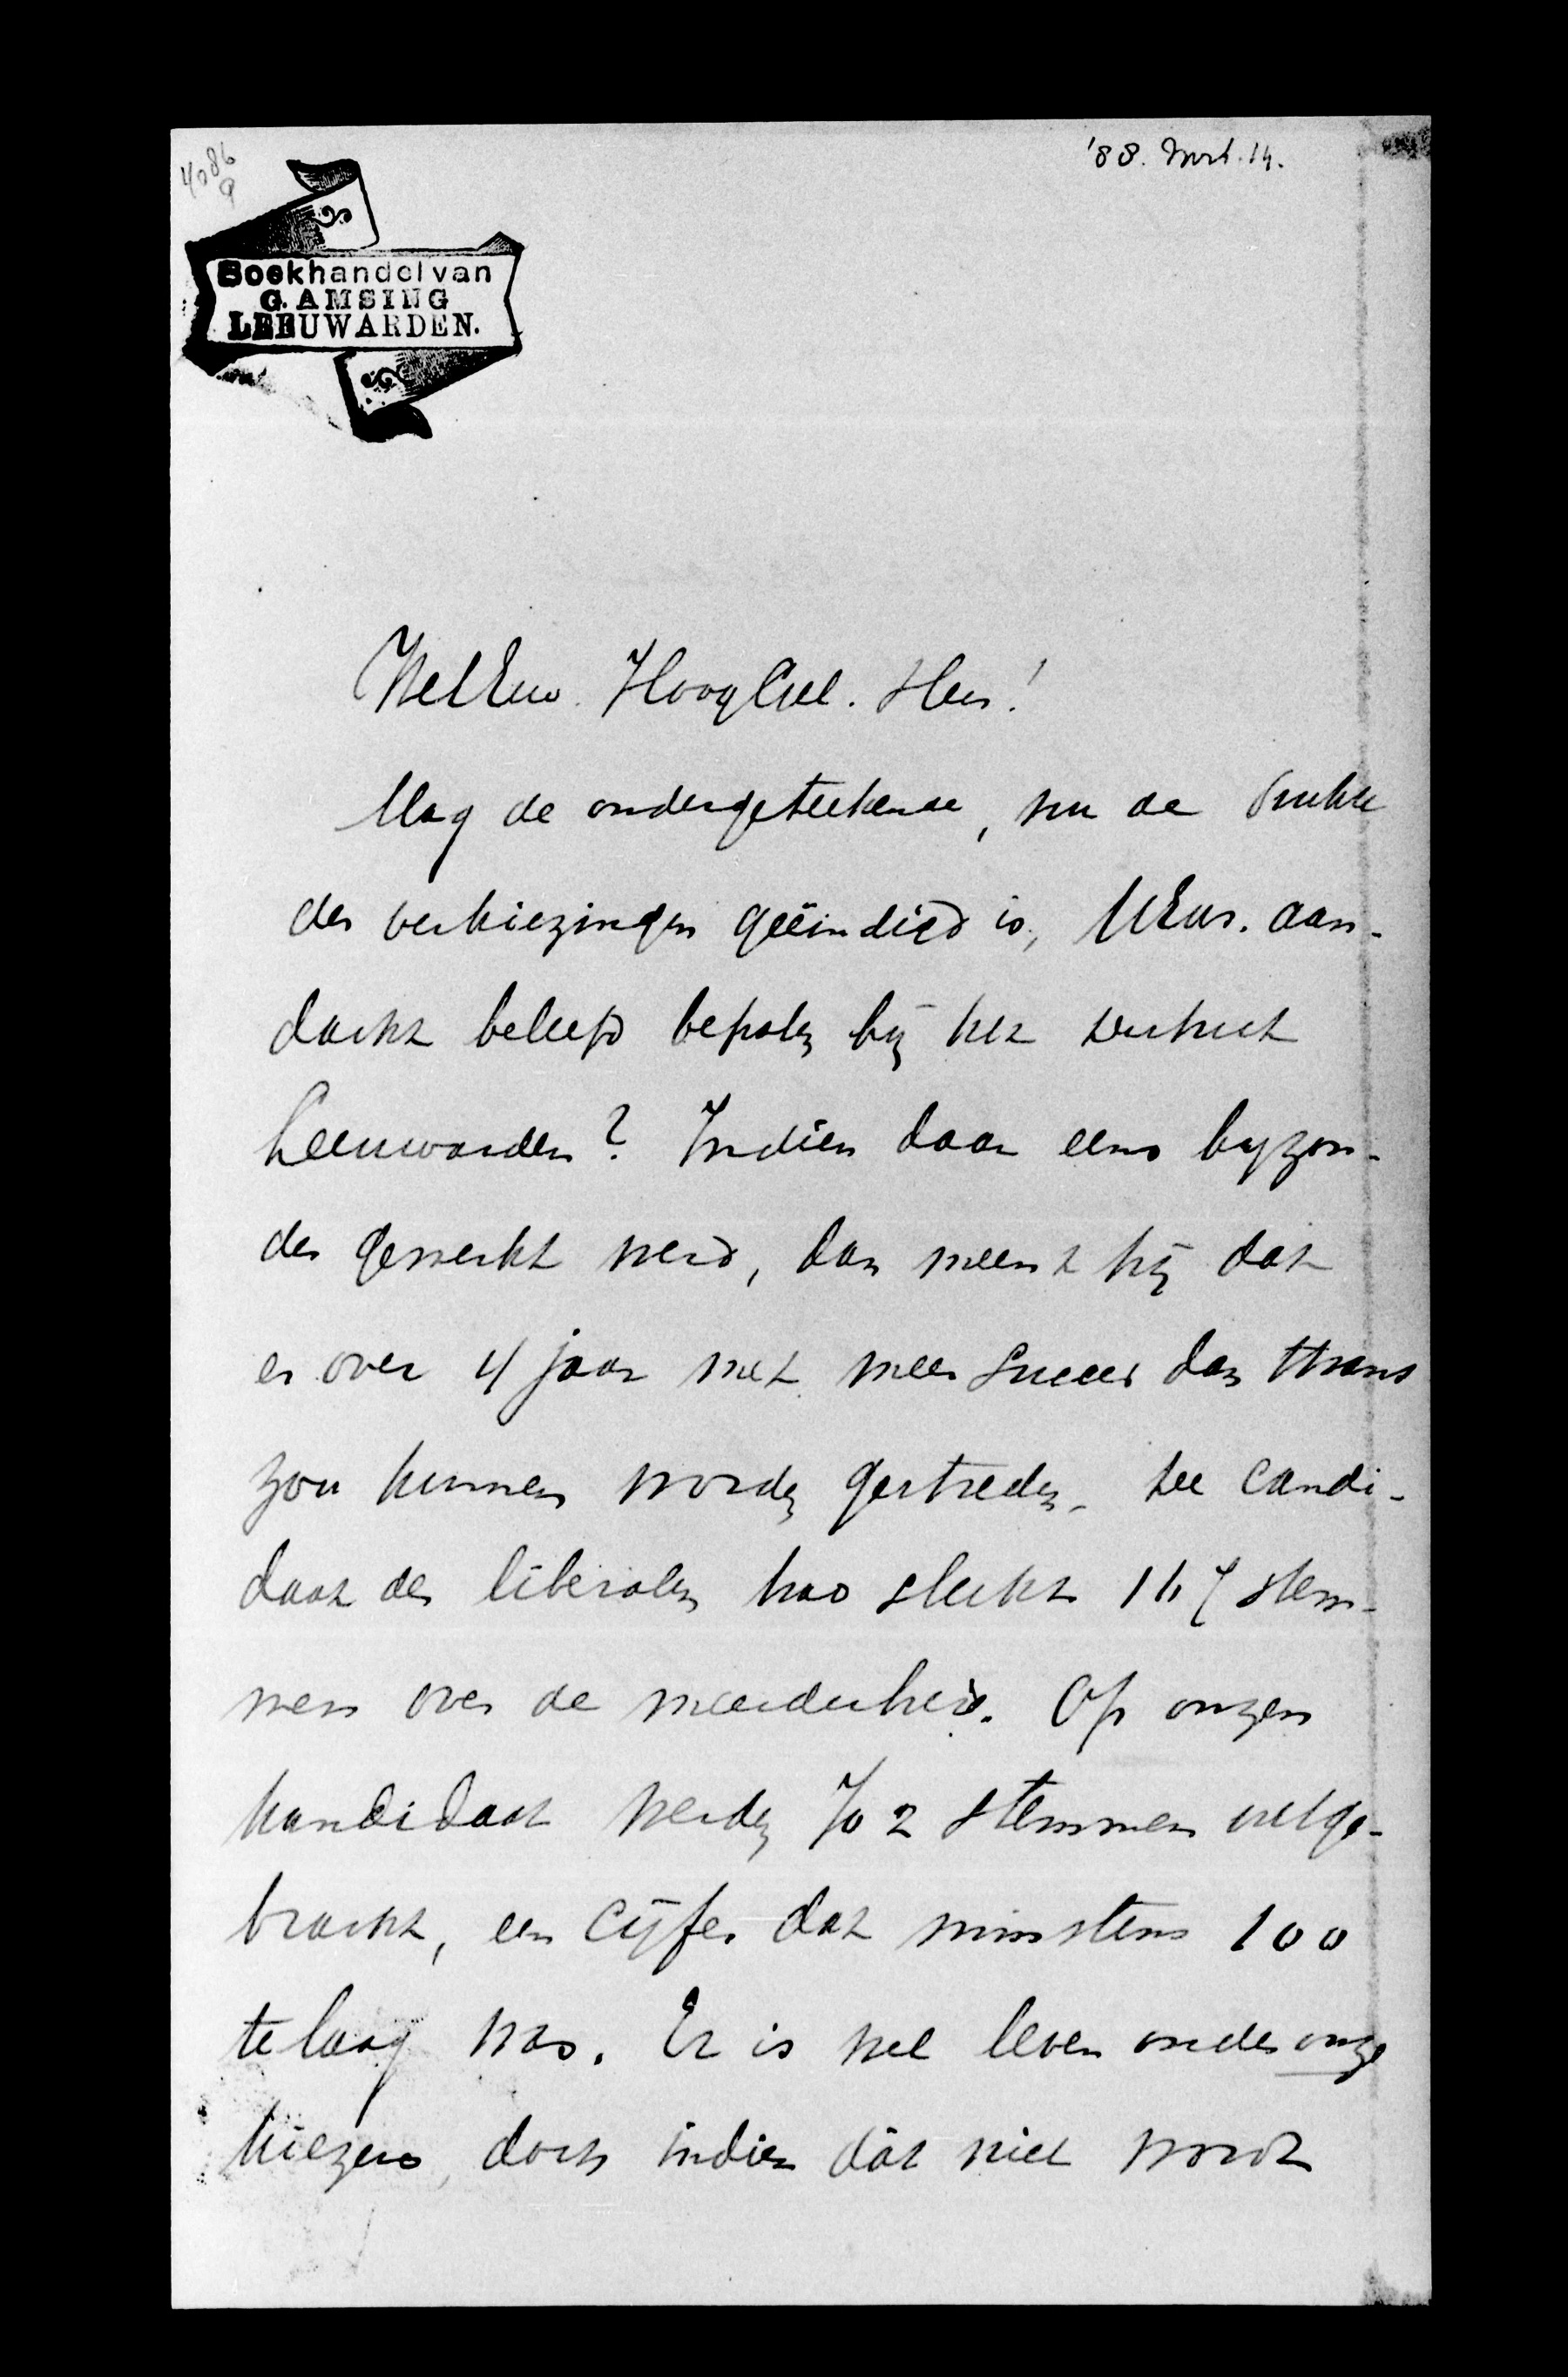 4086
a
'88. Mrt. 14.
Boekhandel van
G. AMSING
LEEUWARDEN.
WelEew. HoogGel. Heer!
Mag de ondergeteekende, nu de drukte
der verkiezingen geëindigd is, UEw. aan-
dacht beleefd bepalen bij het district
Leeuwarden? Indien daar eens byzon-
der gewerkt werd, dan meent hij dat
er over 4 jaar met meer succes dan thans
zou kunnen worden gestreden. De candi-
daat der liberalen had slechts stem-
men over de meerderheid. Op onzen
kandidaat werden 702 stemmen uitge-
bracht, een cijfer dat minstens 100
te laag was. Er is wel leven onder onze
kiezers, doch indien dát niet wordt